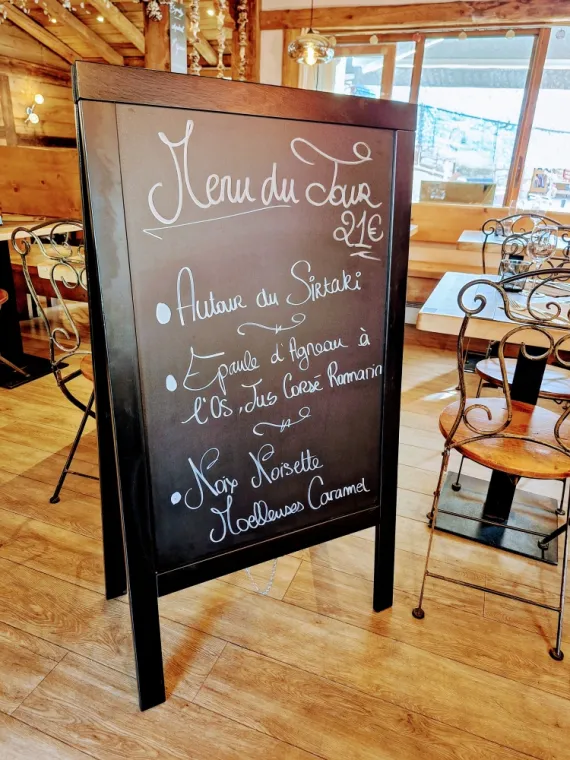 Menu du Jour
21€
Autour du Sirtaki
Epaule d'Agneau à
l'Os, Jus Corsé Romarin
Noix Noisette
Moelleuses Caramel